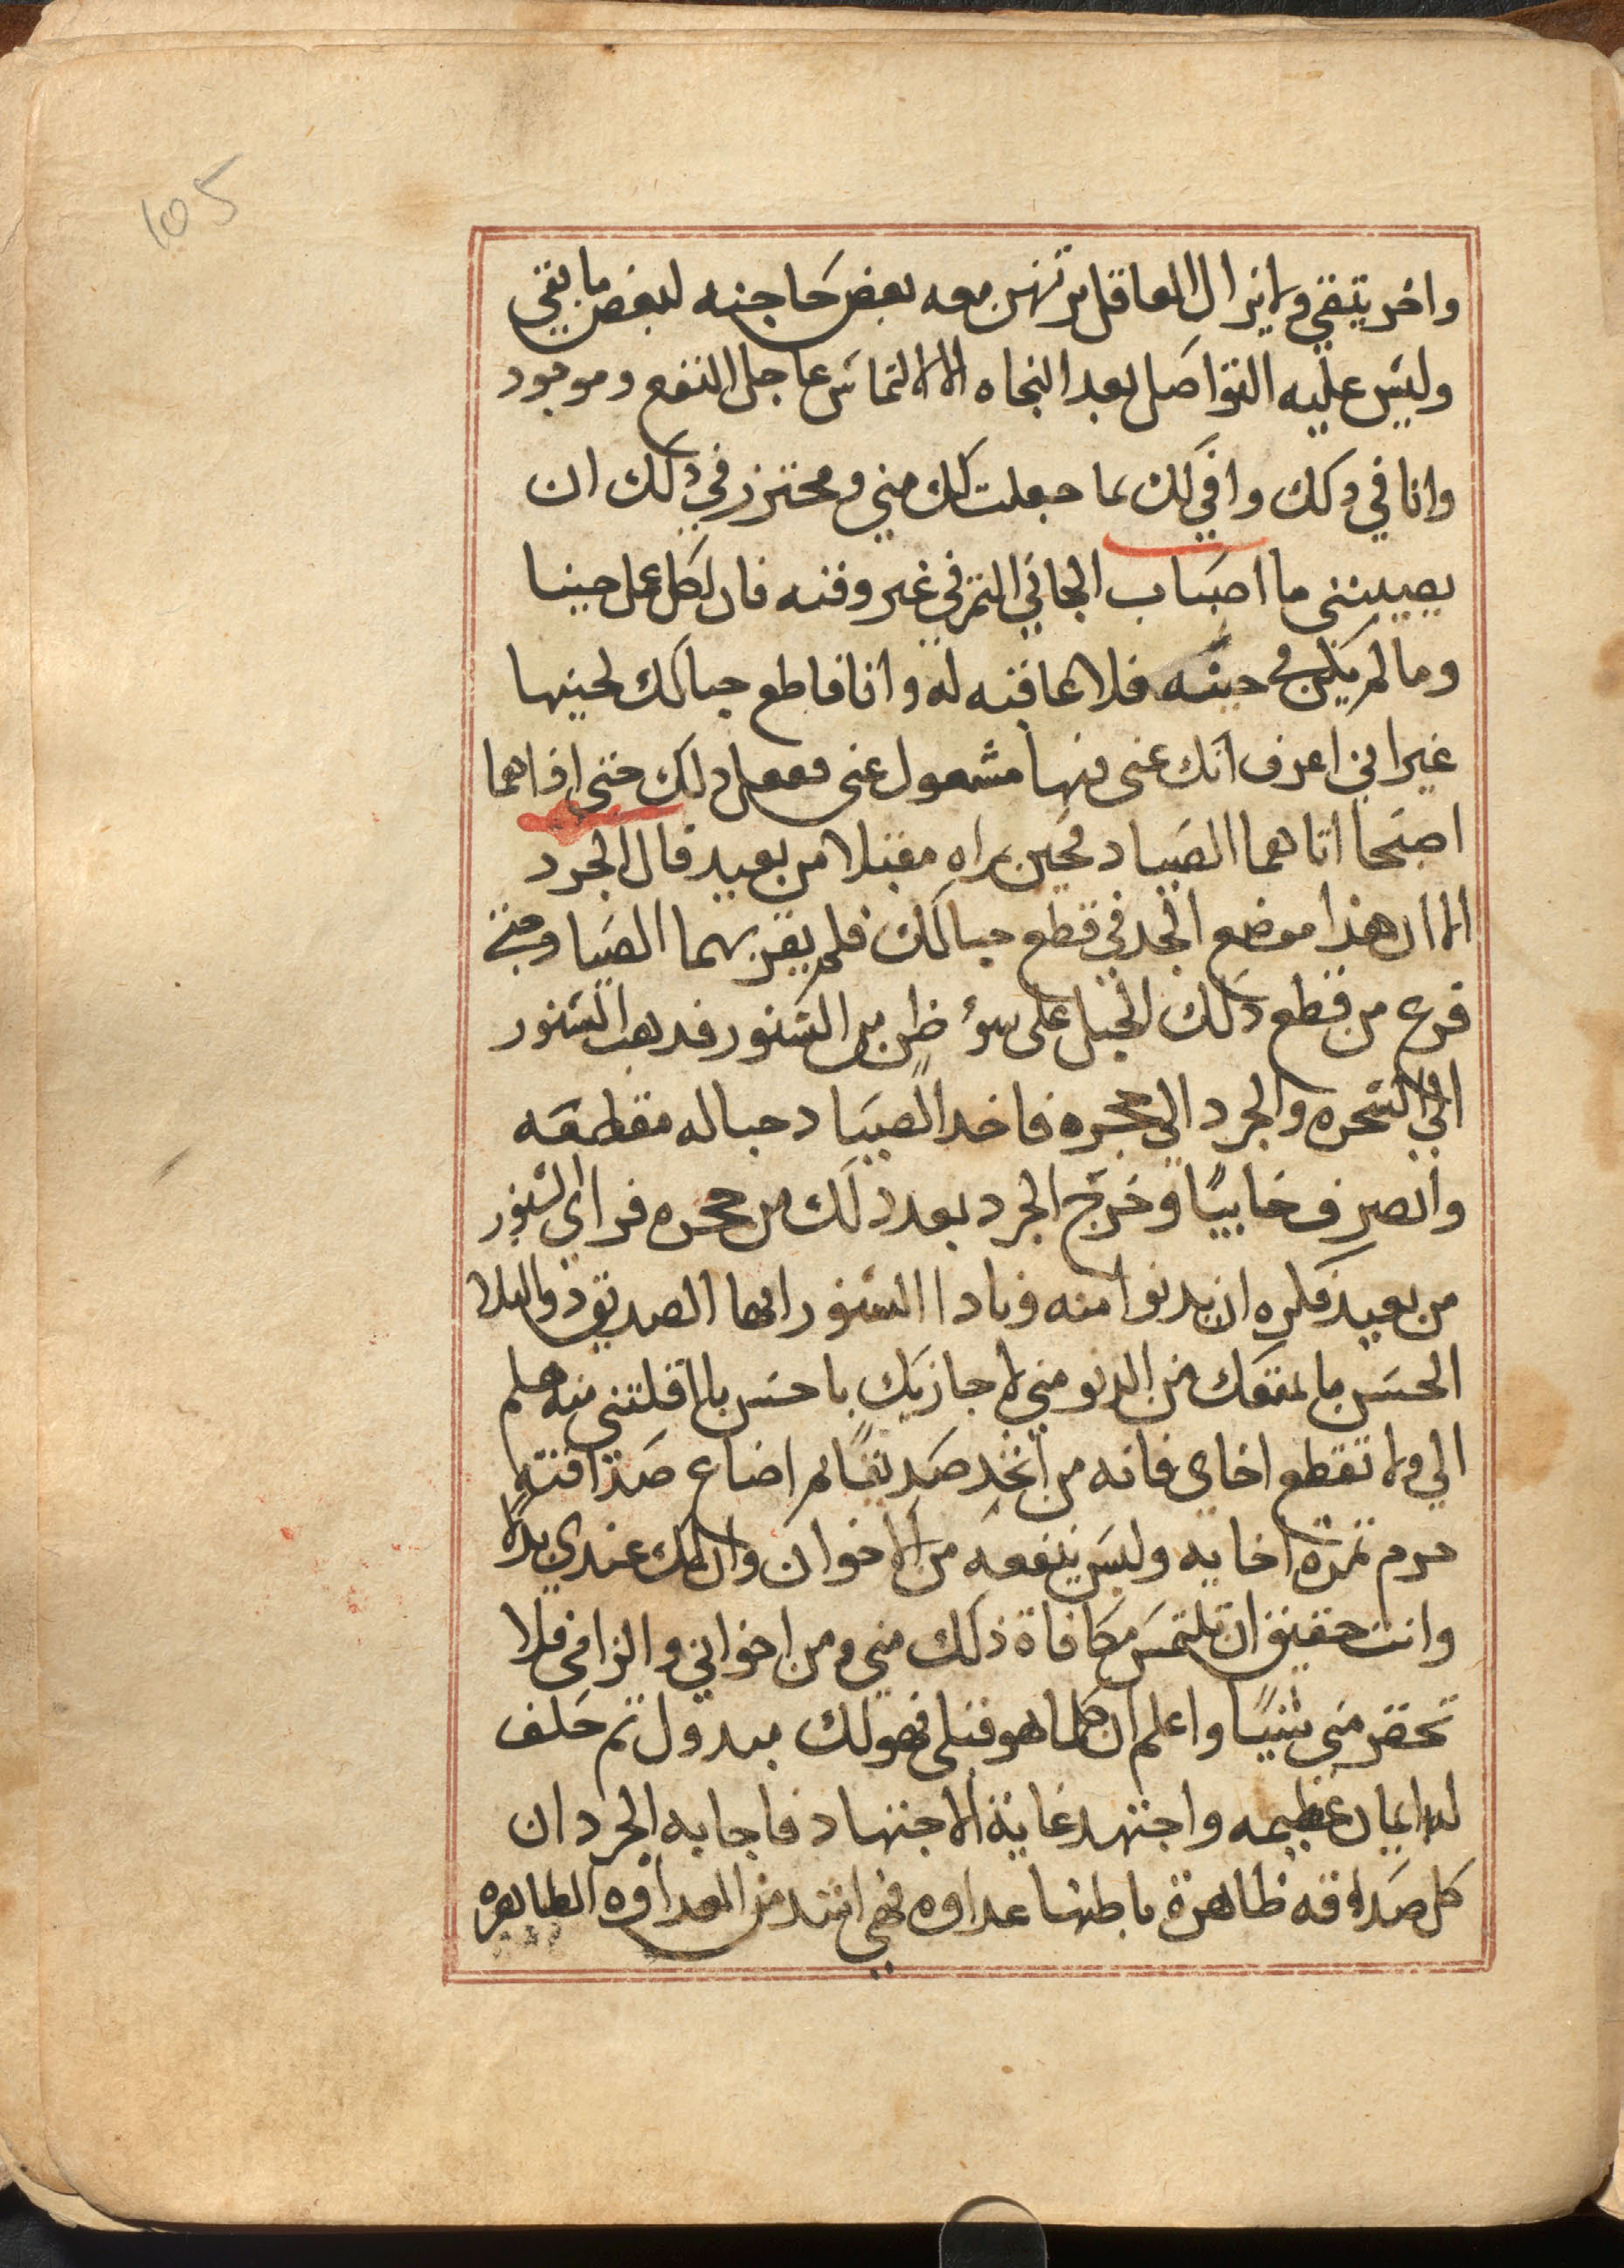 105
واخر يتقي ولا يزال العاقل يرتهن معه بعض حاجته لبعض ما بقي
وليس عليه التواصل بعد النجاه الا الالتماس عاجل النفع وموجود
وانا في ذلك وافي لك بما جعلت لك مني ومحترز في ذلك ان
يصيبنني ما اصاب الجاني الثمر في غير وقته فان لكل عمل حينا
وما لم يكن في حينه فلا عاقبه له وانا قاطع حبالك لحينها
غير اني اعرف انك عني فيها مشغول عني ففعل ذلك حتى اذا هما
اصبحا اتاهما الصياد فحين يراه مقبلا من بعيد قال الجرد
الا ان هذا موضع الجد في قطع حبالك فلم يقربهما الصياد حتى
فرع من قطع ذلك الحبل على سوء ظن من السنور فدهب السنور
الي الشجره والجرد الي جحره فاخد الصياد حباله مقطعه
وانصرف خايبًا وخرج الجرد بعد ذلك من جحره فراى السنور
من بعيد فكره ان يدنوا منه ونادا السنور ايها الصديق ذو البلا
الحسن ما يمنعك من الدنو مني لاجازيك باحسن ما اقلتني منه هلم
الي ولا تقطع اخاي فانه من اتخد صديقًا لم اضاع صداقته
حرم ثمرة اخايه وليس ينفعه من الاخوان وان لك عندي يدًا
وانت حقيق ان تلتمس مكافاة ذلك مني ومن اخواني والزامي فلا
تحقر مني شيًا واعلم ان كلما هو قبلي فهو لك مبدول ثم حلف
له ايمان عظيمه واجتهد غاية الاجتهاد فاجابه الجرد ان
كل صداقه ظاهرة باطنها عداوه فهي اشد من العداوه الظاهره